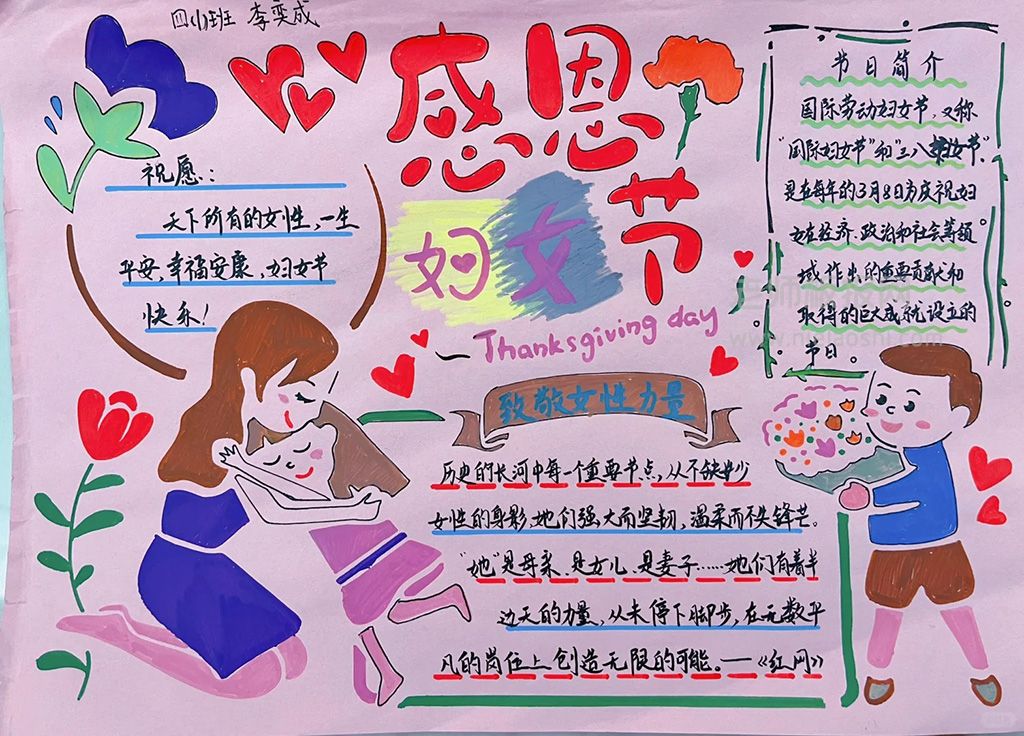 四(1)班 李奕成
感恩节
妇女
Thanksgiving day
祝愿:
天下所有的女性,一生
平安,幸福安康,妇女节
快乐!
节日简介
国际劳动妇女节,又称
“国际妇女节”和“三八妇女节”。
是在每年的3月8日为庆祝妇
女在经济、政治和社会等领
域作出的重要贡献和
取得的巨大成就设立的
节日。
致敬女性力量
历史的长河中每一个重要节点,从不缺少
女性的身影,她们强大而坚韧,温柔而不失锋芒。
“她”是母亲、是女儿、是妻子……她们有着半
边天的力量,从未停下脚步,在无数平
凡的岗位上创造无限的可能。—《红网》